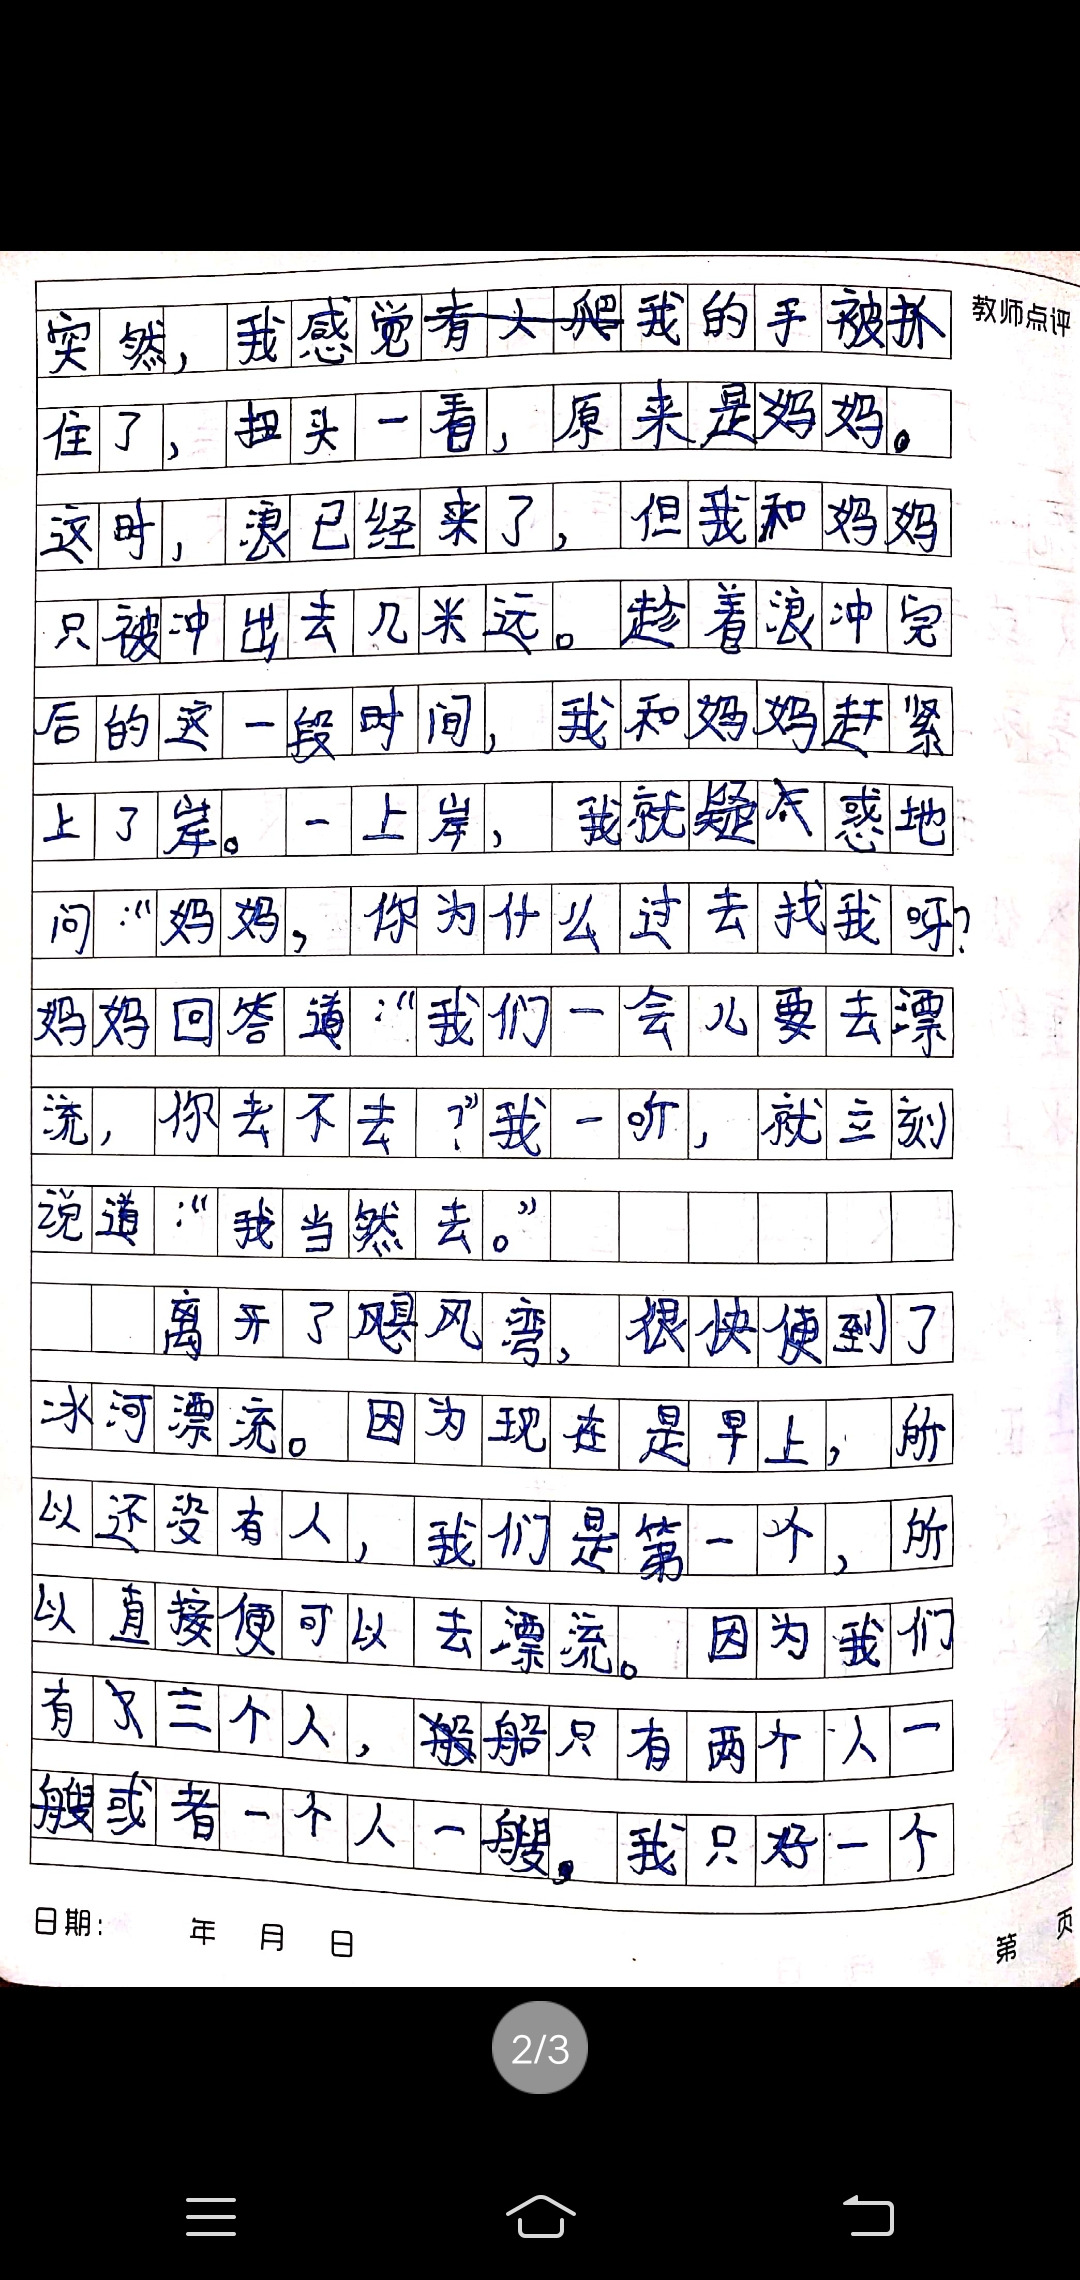 突然，我感觉有人爬我的手被抓
教师点评
住了，扭头一看，原来是妈妈。
这时，浪已经来了，但我和妈妈
只被冲出去几米远。趁着浪冲完
后的这一段时间，我和妈妈赶紧
上了岸。一上岸，我就疑惑地
问："妈妈，你为什么过去找我呀？
妈妈回答道："我们一会儿要去漂
流，你去不去？"我一听，就立刻
说道："我当然去。"
离开了飓风弯，很快便到了
冰河漂流。因为现在是早上，所
以还没有人，我们是第一个，所
以直接便可以去漂流。因为我们
有三个人，船只有两个人一
艘或者一个人一艘。我只好一个
日期： 年 月 日
第 页
2/3